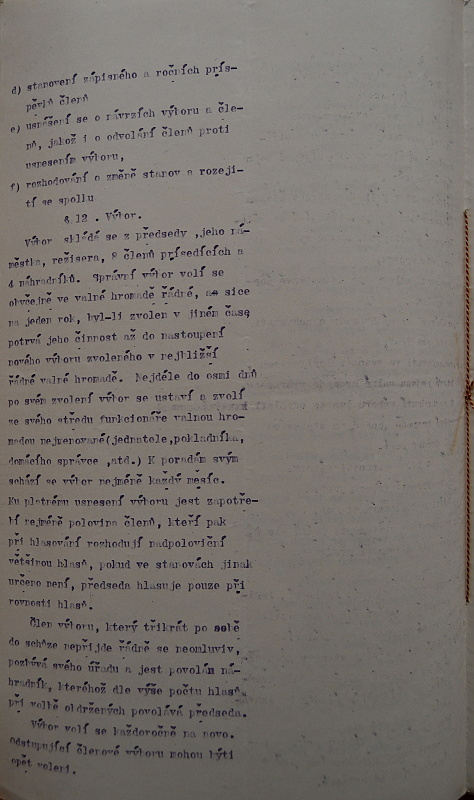 d) stanovení zápisného a ročních přís-
pěvků členů
e) usnášení se o návrzích výboru a čle-
nů, jakož i o odvolání členů proti
usnesením výboru,
f) rozhodování o změně stanov a rozejí-
tí se spolku
§.12 . Výbor.
Výbor skládá se z předsedy ,jeho ná-
městka, režisera, 8 členů přísedících a
4 náhradníků. Správní výbor volí se
obyčejně ve valné hromadě řádné, a sice
na jeden rok, byl-li zvolen v jiném čase
potrvá jeho činnost až do nastoupení
nového výboru zvoleného v nejbližší
řádné valné hromadě. Nejdéle do osmi dnů
po svém zvolení výbor se ustaví a zvolí
ze svého středu funkcionáře valnou hro-
madou nejmenované(jednatele,pokladníka,
domácího správce ,atd.) K poradám svým
schází se výbor nejméně každý měsíc.
Ku platnému usnesení výboru jest zapotře-
bí nejméně polovina členů, kteří pak
při hlasování rozhodují nadpoloviční
většinou hlasů, pokud ve stanovách jinak
určeno není, předseda hlasuje pouze při
rovnosti hlasů.
Člen výboru, který třikrát po sobě
do schůze nepřijde řádně se neomluviv,
pozbývá svého úřadu a jest povolán ná-
hradník, kteréhož dle výše počtu hlasů,
při volbě obdržených povolává předseda.
Výbor volí se každoročně na novo.
Odstupující členové výboru mohou býti
opět voleni.